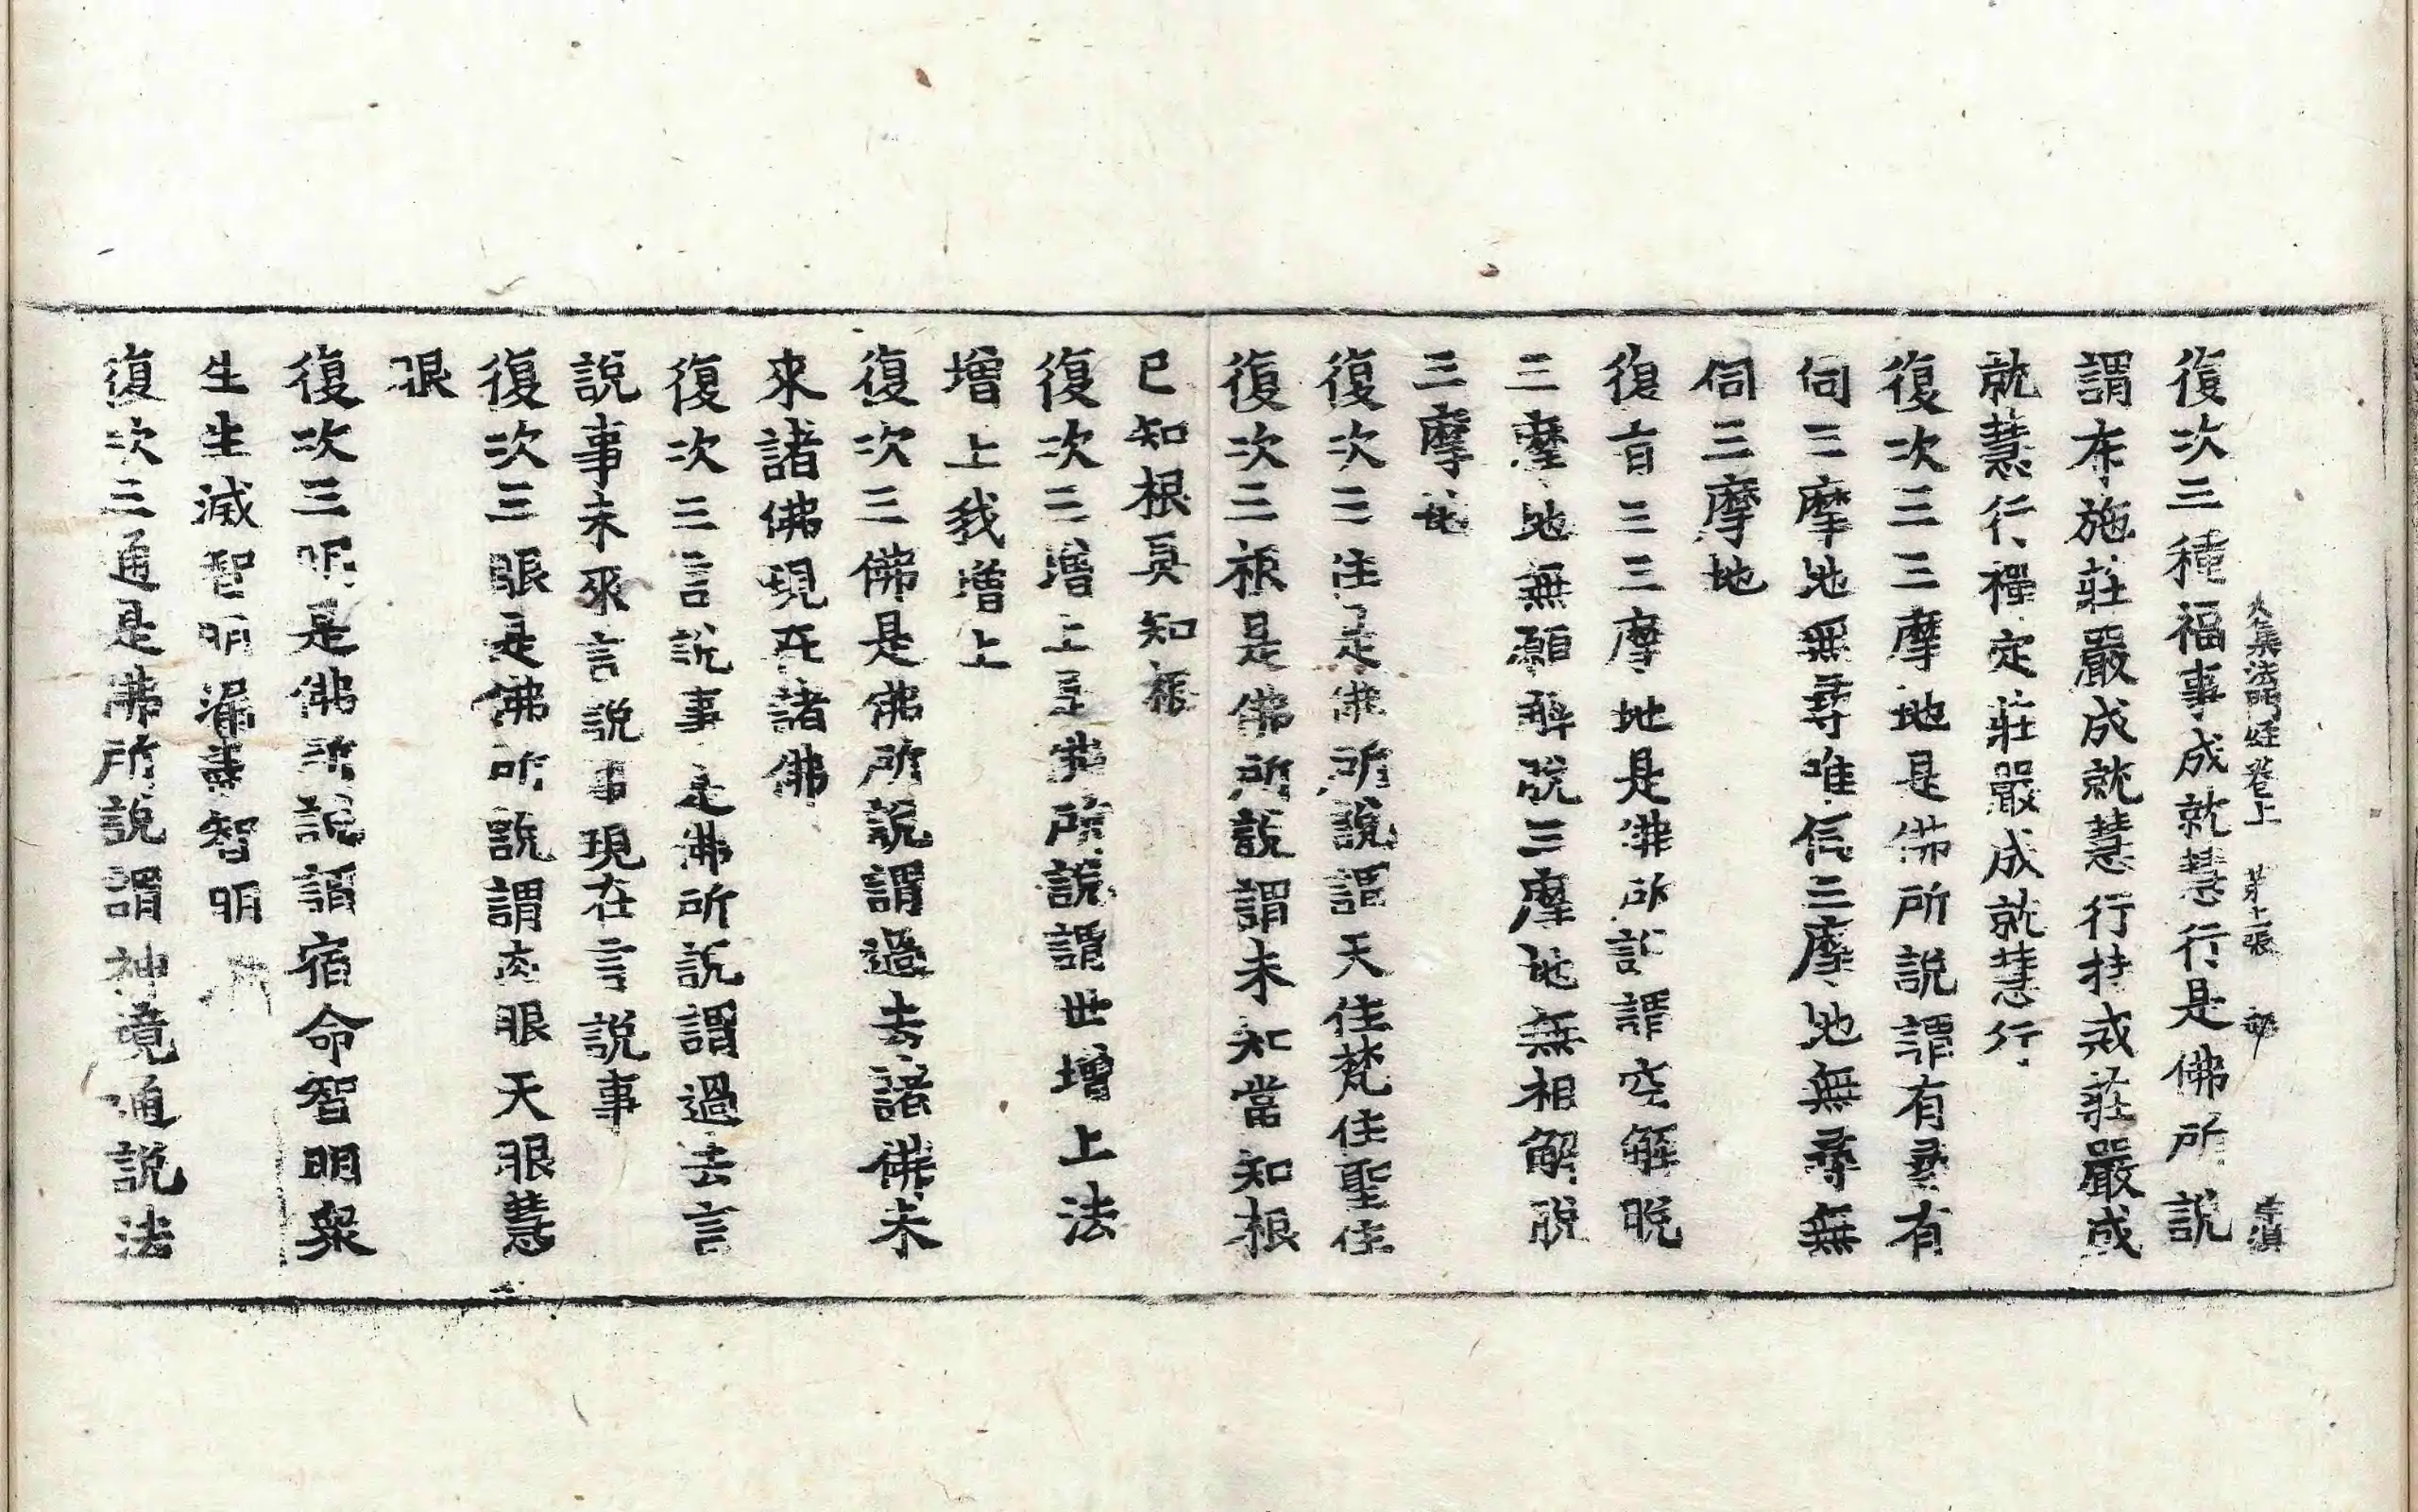 大集法門經卷上 第十一張
復次三種福事成就慧行是佛所說
謂布施莊嚴成就慧行持戒莊嚴成
就慧行禪定莊嚴成就慧行
復次三三摩地是佛所說謂有尋有
伺三摩地無尋唯伺三摩地無尋無
伺三摩地
復有三三摩地是佛所說謂空解脫
三摩地無願解脫三摩地無相解脫
三摩地
復次三住是佛所說謂天住梵住聖住
復次三根是佛所說謂未知當知根
已知根具知根
復次三增上是佛所說謂世增上法
增上我增上
復次三佛是佛所說謂過去諸佛未
來諸佛現在諸佛
復次三言說事是佛所說謂過去言
說事未來言說事現在言說事
復次三眼是佛所說謂肉眼天眼慧
眼
復次三明是佛所說謂宿命智明衆
生生滅智明漏盡智明
復次三通是佛所說謂神境通說法